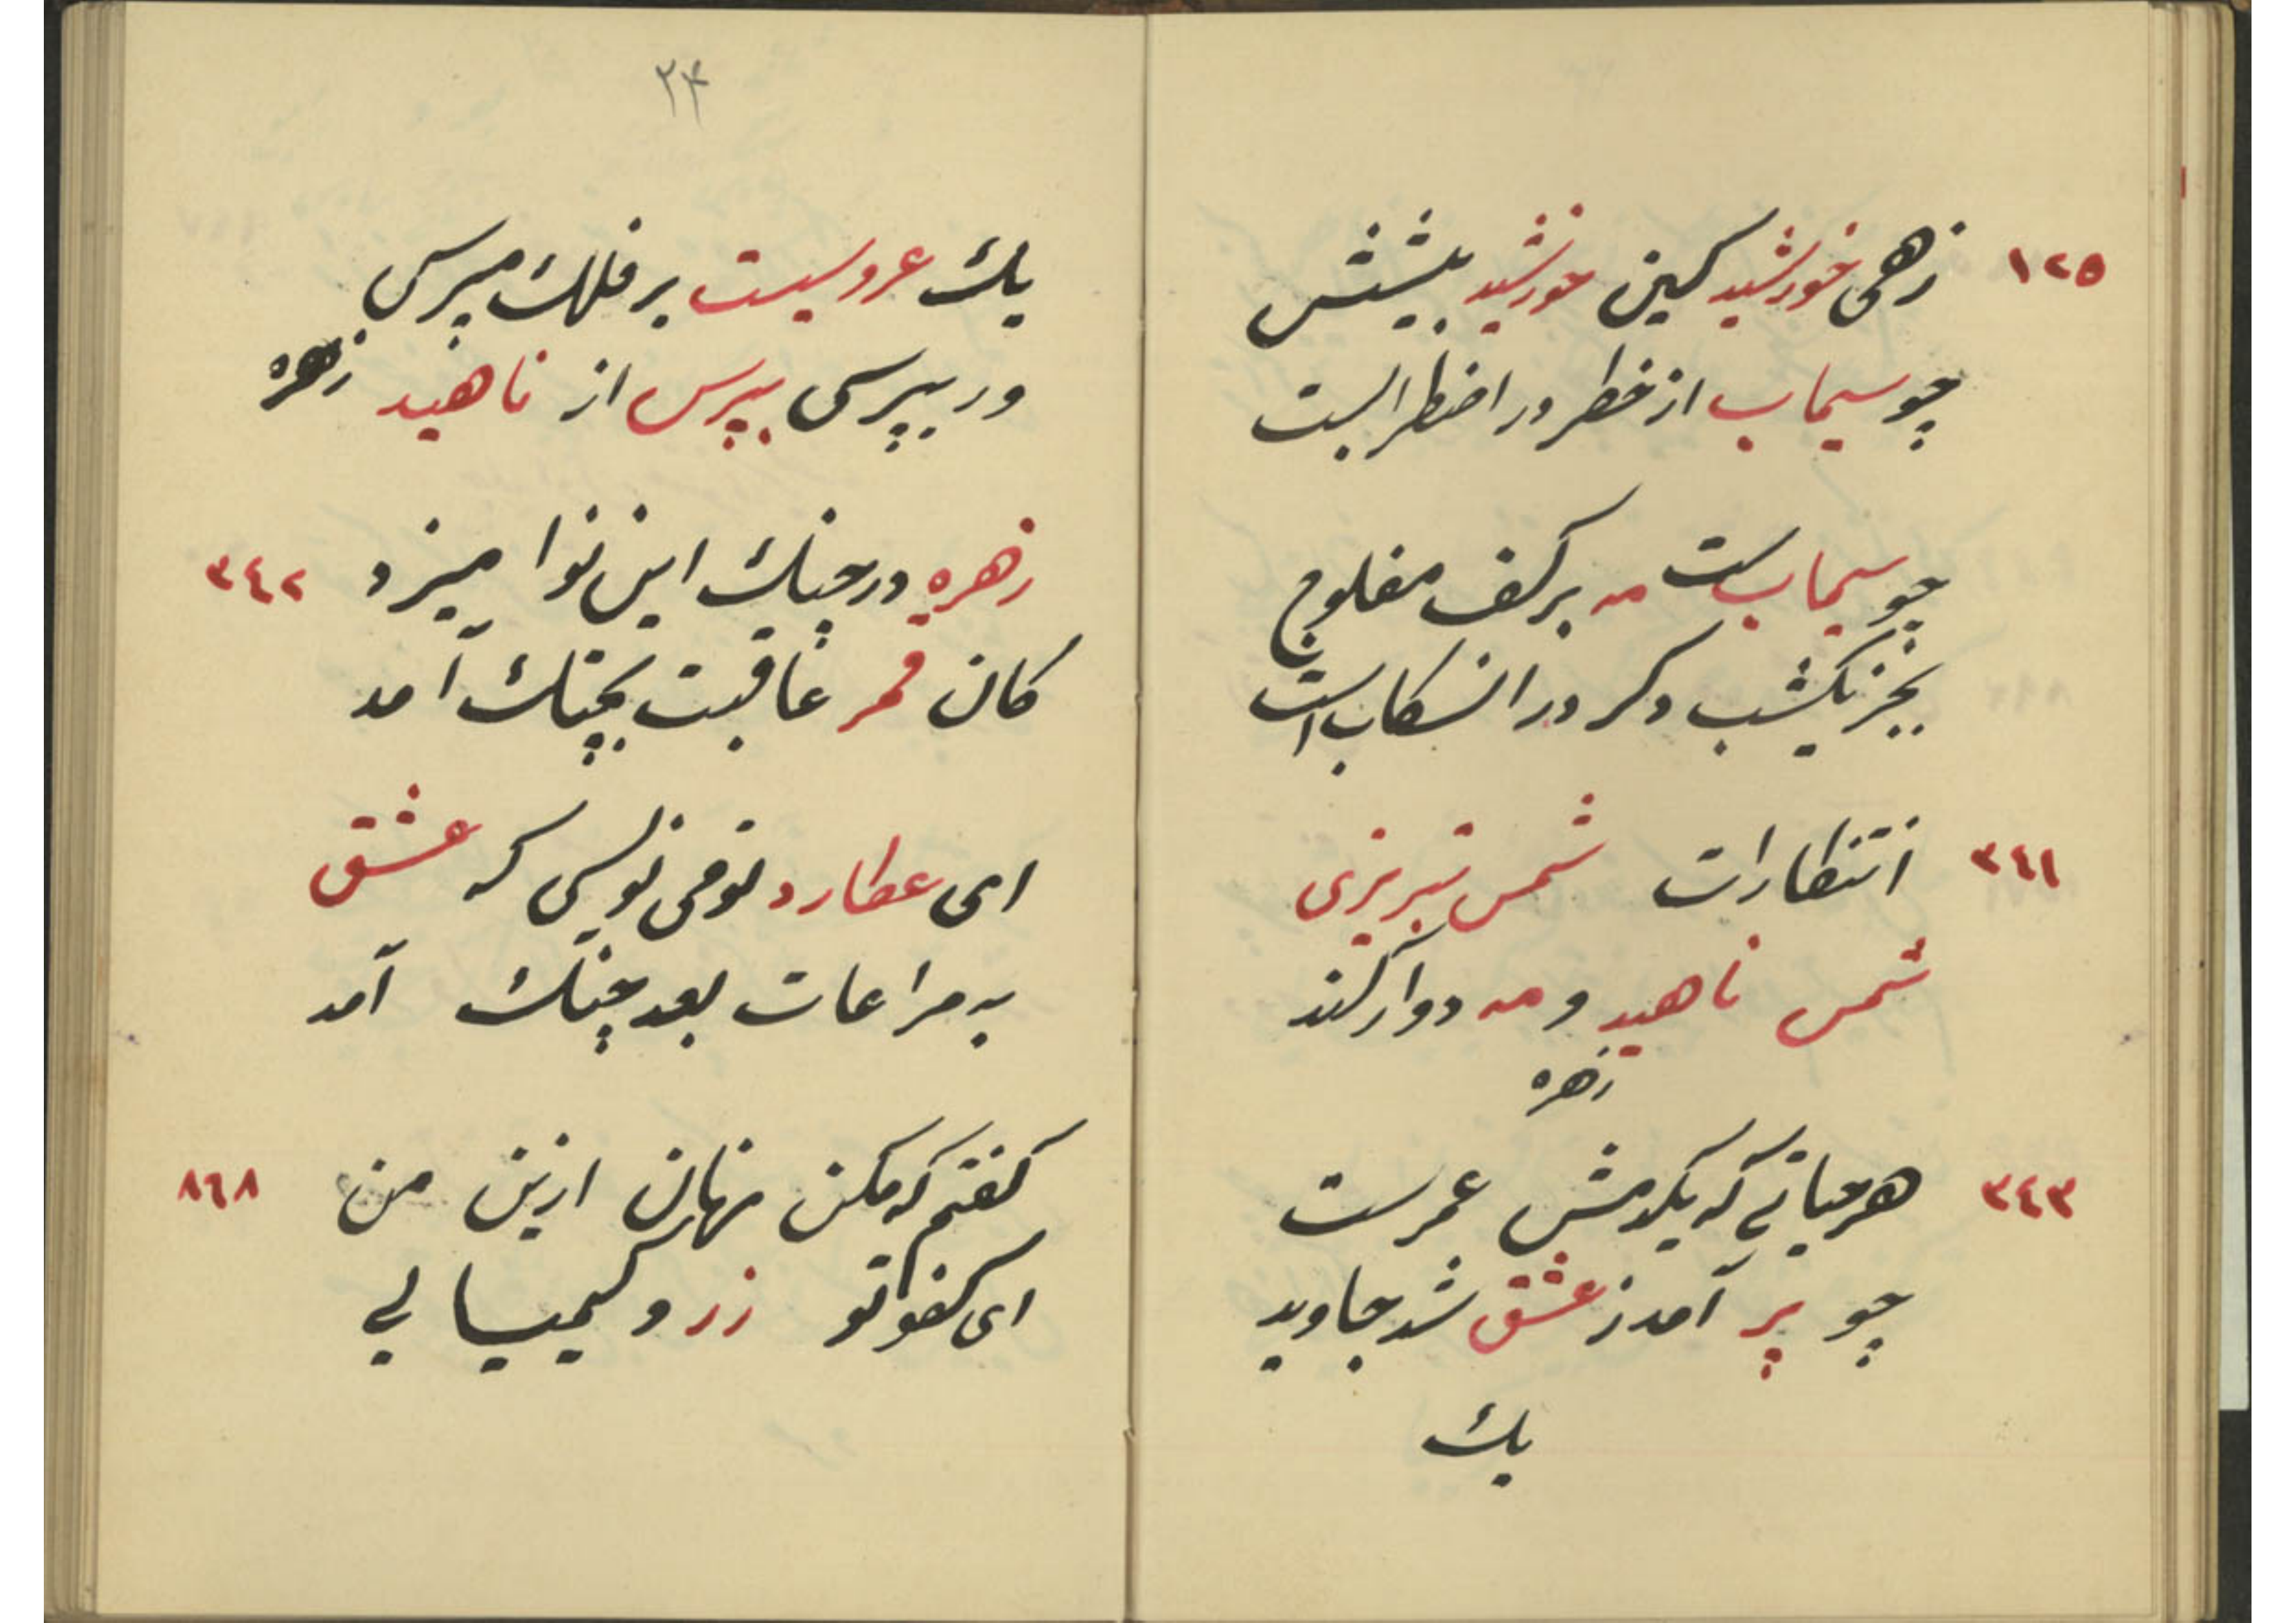 ١٢٥ زهی خورشید کین خورشید پیشش
چو سیماب از خطر در اضطرابست
چو سیماب ست مه بر کف مفلوج
بجز یکشب دگر در انسکاب است
٣٤١ انتظارات شمس تبریزی
شمس ناهید و مه دوار کند
زهره
٣٤٣ هر حیاتی که یکدمش عمرست
چو پر آمد ز عشق شد جاوید
یک
٢۴
یک عروسیست بر فلک میرسی
ور بپرسی بپرس از ناهید زهره
٣٤٢ زهره در چنک این نوا میزد
کان قمر عاقبت بچنک آمد
ای عطارد تو می نویسی که عشق
به مراعات بعد چنک آمد
٨٦٨ گفتم که مکن نهان ازین من
ای کفو تو زر و کیمیا لی